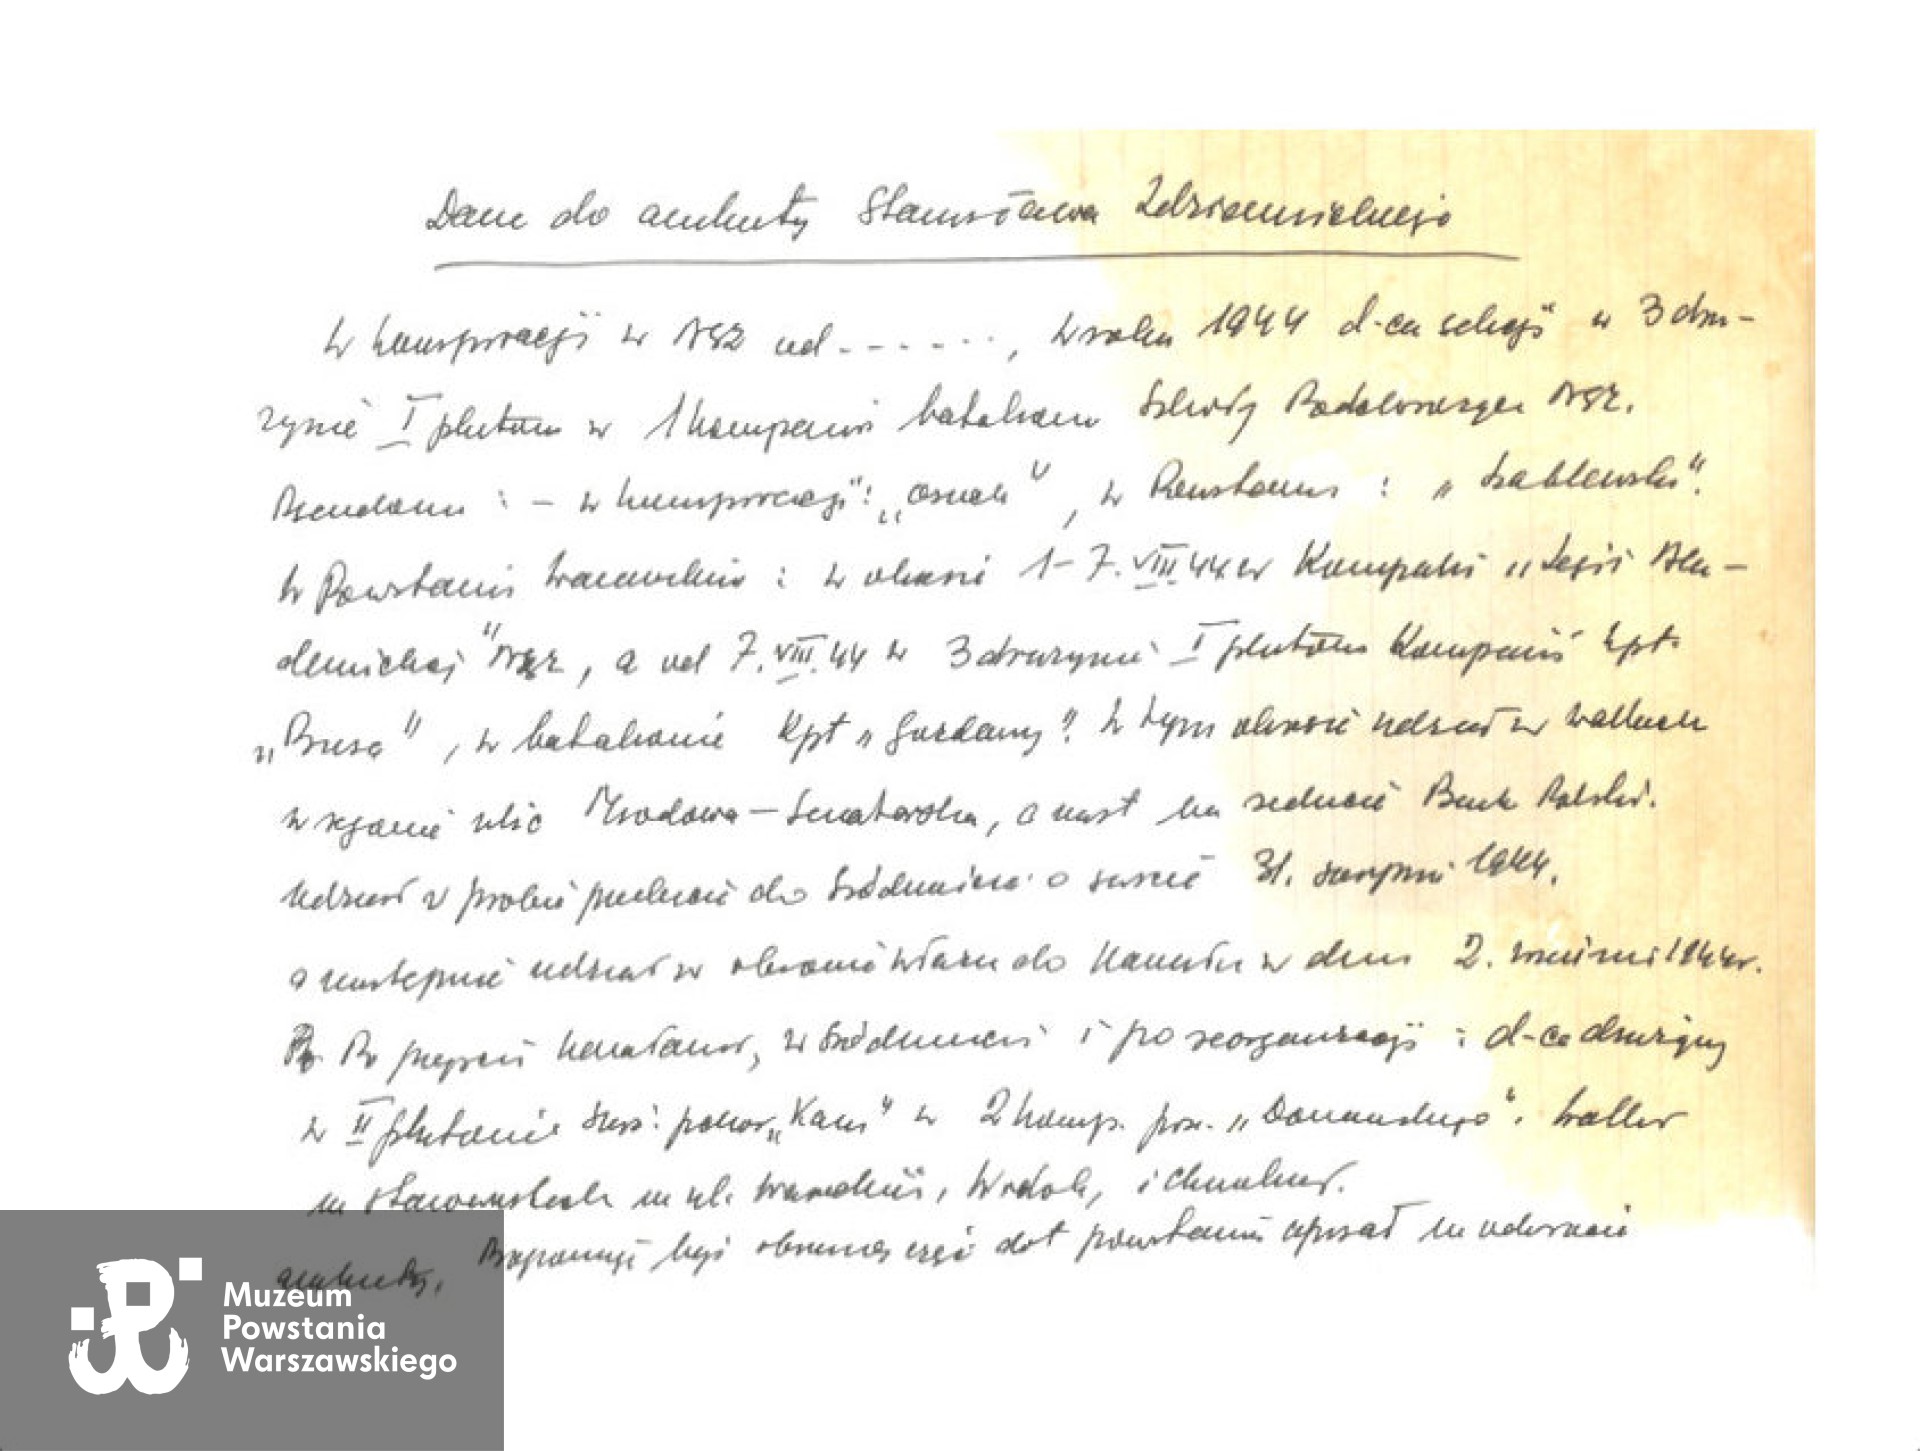 Dane do ankiety Stanisława
W konspiracji w NSZ od - - - - - -, w roku 1944 d-ca sekcji w 3 dru-
żynie I plutonu w 1 kompanii batalionu Szkoły Podchorążych NSZ.
Pseudonim : - w konspiracji: „ ", w Powstaniu : „Szablewski".
W Powstaniu Warszawskim : w okresie 1-7.VIII.44 w Kompanii „Legii Aka-
demickiej" NSZ, a od 7.VIII.44 w 3 drużynie I plutonu Kompanii kpt.
„ ", w batalionie kpt „Gozdawy". W tym okresie udział w walkach
w rejonie ulic Miodowa - Senatorska, a nast na reducie Bank Polski.
Udział w próbie przebicia do Śródmieścia o świcie 31. sierpnia 1944.
a następnie udział w obronie włazu do kanału w dniu 2. września 1944r.
Po przejściu kanałami, w Śródmieściu i po reorganizacji : d-ca drużyny
w II plutonie w 2 komp. por. „ ". Walki
na stanowiskach na ul. Wareckiej, i Chmielnej.
Proponuję by obszerną część dot powstania opisał na odwrocie
ankiety.
Muzeum
Powstania
Warszawskiego